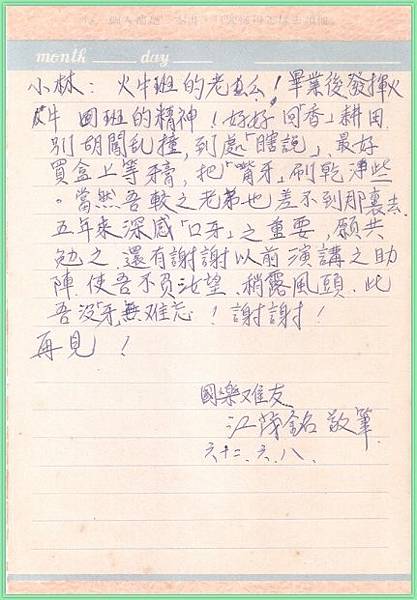 month day
小林：火牛班的老么！畢業後發揮火
牛回班的精神！好好回「香」耕田
別胡闖乱撞，到處「瞎說」，最好
買盒上等牙膏，把「嘴牙」刷乾淨些
。當然吾較之老弟也差不到那裏去，
五年來深感「口牙」之重要，願共
勉之，還有謝謝以前演講之助
陣，使吾不负汝望，稍露風頭，此
吾沒「牙」無难忘！謝謝！
再見！
國樂难友
江茂銘敬筆
六十二．六．八．